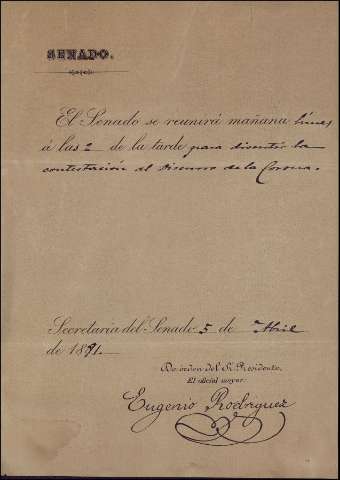 SENADO.
El Senado se reunirá mañana lúnes
á las 2 de la tarde para discutir la
contestación al Discurso de la Corona.
Secretaría del Senado 5 de Abril
de 1891.
De orden del Sr. Presidente.
El oficial mayor
Eugenio Rodriguez